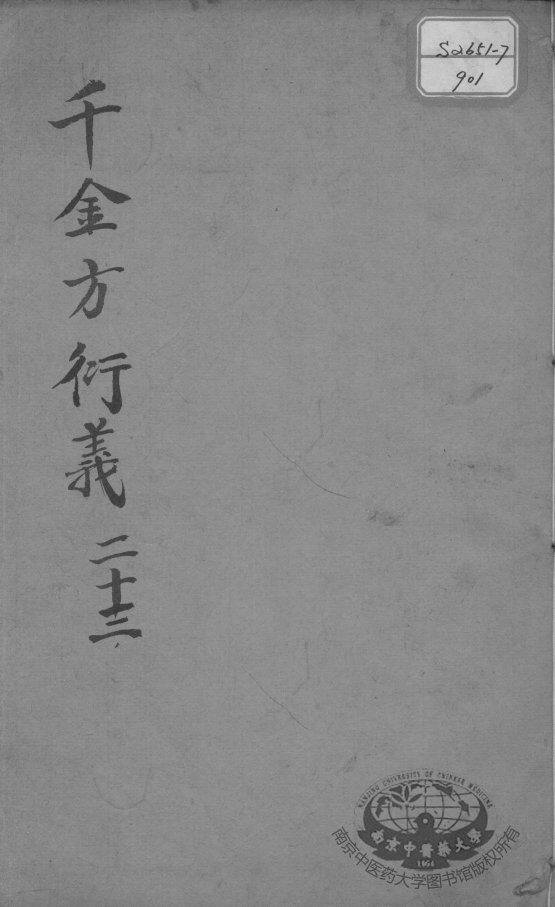 S2651-7
901
千金方衍義 二十三
NANJING UNIVERSITY OF CHINESE MEDICINE
南京中醫藥大學
1954
南京中医药大学图书馆版权所有